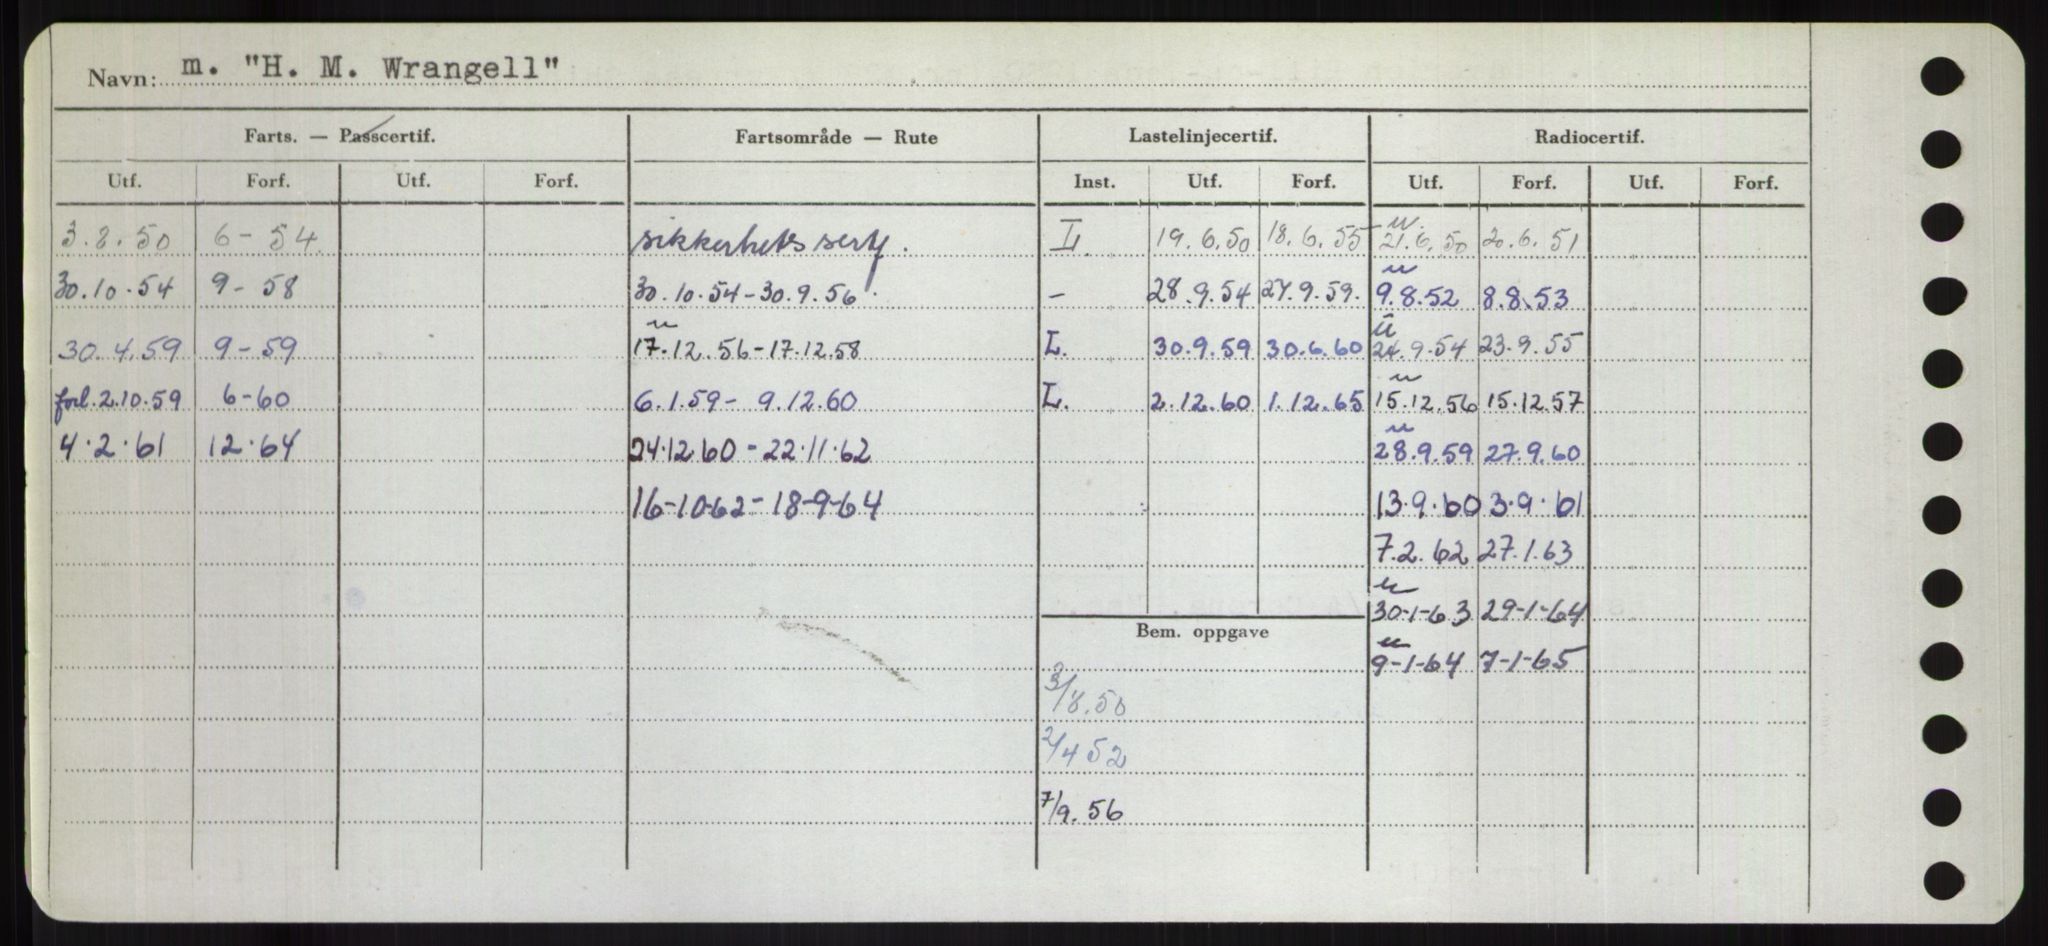 Navn: m. "H. M. Wrangell"
Farts. — Passcertif. Fartsområde — Rute Lastelinjecertif. Radiocertif.
Utf. Forf. Utf. Forf. Inst. Utf. Forf. Utf. Forf. Utf. Forf.
3.8.50 6-54 sikkerhetssertf. L 19.6.50 18.6.55 21.6.50 20.6.51
30.10.54 9-58 30.10.54-30.9.56 — 28.9.54 27.9.59. 9.8.52 8.8.53
30.4.59 9-59 17.12.56-17.12.58 L. 30.9.59 30.6.60 24.9.54 23.9.55
forl. 2.10.59 6-60 6.1.59- 9.12.60 L. 2.12.60 1.12.65 15.12.56 15.12.57
4.2.61 12.64 24.12.60-22.11.62 28.9.59 27.9.60
16-10-62-18-9-64 13.9.60 3.9.61
7.2.62 27.1.63
30-1-63 29-1-64
Bem. oppgave
9-1-64 7-1-65
3/8.50
2/4 52
7/9.56